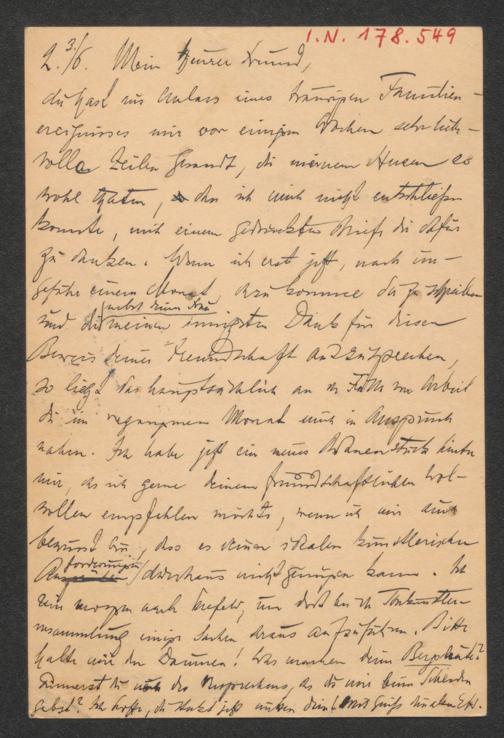 I.N. 178.549
2.3/6. Mein teurer Freund,
du hast aus Anlass eines traurigen Familien-
ereignisses mir vor einigen Wochen sehr lieb-
volle Zeilen gesandt, die meinem Herzen so
wohl thaten, dass ich mich nicht entschliessen
konnte, mit einem gedruckten Briefe dir dafür
zu danken. Wenn ich erst jetzt, nach un-
gefähr einem Monat dazu komme dir zu schreiben
und dir nebst deiner Frau meinen innigsten Dank für diesen
Beweis deiner Freundschaft auszusprechen,
so liegt das hauptsächlich an der Fülle von Arbeit
die im vergangenen Monat mich in Anspruch
nahm. Ich habe jetzt ein neues hinter
mir, das ich gerne deinem freundschaftlichen Wol-
wollen empfehlen möchte, wenn ich mir auch
bewusst bin, dass es deinen idealen künstlerischen
Forderungen durchaus nicht genügen kann. Ich
bin morgen nach Krefeld, um dort an der Tonkünstler-
versammlung einige Sachen draus aufzuführen. Bitte
halte mir den Daumen! Was machen deine
Erinnerst du mich des Versprechens, das du mir beim Scheiden
gabst? Ich hoffe, du